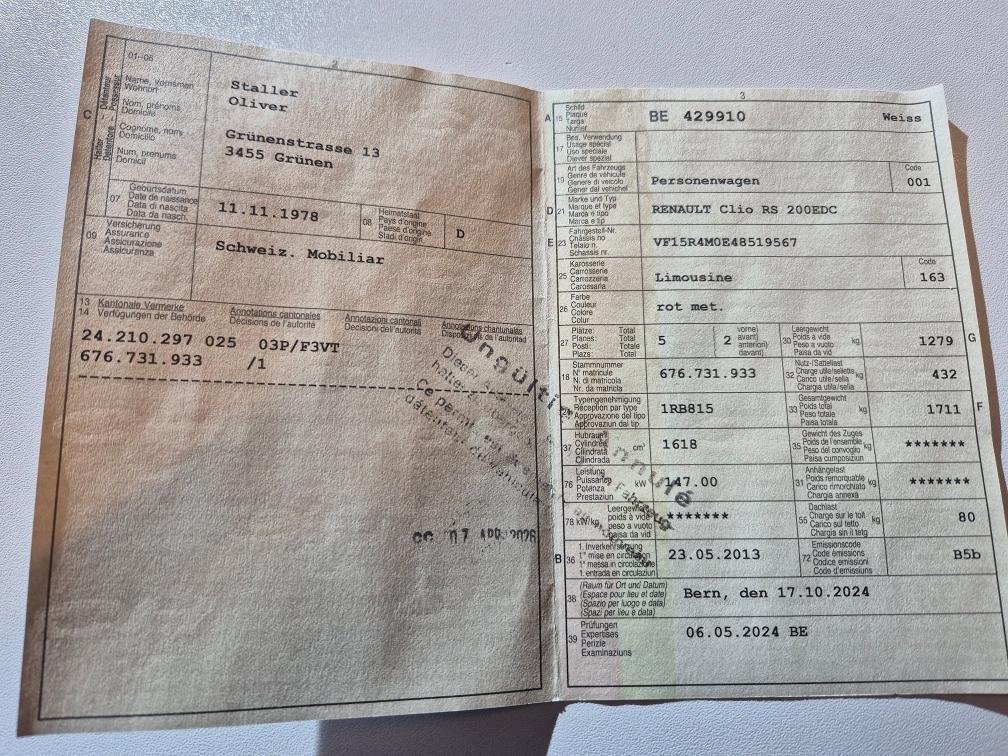 2
01–06
Name, Vornamen
Wohnort
Nom, prénoms
Domicile
Cognome, nomi
Domicilio
Num, prenums
Domicil
C
Halter Détenteur
Detentore Possessur
Staller
Oliver
Grünenstrasse 13
3455 Grünen
07
Geburtsdatum
Date de naissance
Data di nascita
Data da nasch.
11.11.1978
08
Heimatstaat
Pays d'origine
Paese d'origine
Stadi d'origin
D
09
Versicherung
Assurance
Assicurazione
Assicuranza
Schweiz. Mobiliar
13 Kantonale Vermerke Annotations cantonales Annotazioni cantonali Annotaziuns chantunalas
14 Verfügungen der Behörde Décisions de l'autorité Decisioni dell'autorità Disposiziuns da l'autoritad
24.210.297 025 03P/F3VT
676.731.933 /1
Ungültig
Annulé
Ce permis
07. APR. 2026
3
A 15
Schild
Plaque
Targa
Numer
BE 429910 Weiss
17
Bes. Verwendung
Usage spécial
Uso speciale
Diever spezial
19
Art des Fahrzeugs
Genre de véhicule
Genere di veicolo
Gener dal vehichel
Personenwagen
Code
001
D 21
Marke und Typ
Marque et type
Marca e tipo
Marca e tip
RENAULT Clio RS 200EDC
E 23
Fahrgestell-Nr.
Châssis no
Telaio n.
Schassis nr.
VF15R4M0E48519567
25
Karosserie
Carrosserie
Carrozzeria
Carossaria
Limousine
Code
163
26
Farbe
Couleur
Colore
Colur
rot met.
27
Plätze: Total
Places: Total
Posti: Totale
Plazs: Total
5
2
vorne)
avant)
anteriori)
davant)
30
Leergewicht
Poids à vide
Peso a vuoto
Paisa da vid
kg
1279
G
18
Stammnummer
N° matricule
N. di matricola
Nr. da matricla
676.731.933
32
Nutz-/Sattellast
Charge utile/sellette
Carico utile/sella
Chargia utila/sella
kg
432
Typengenehmigung
Réception par type
Approvazione del tipo
Approvaziun dal tip
1RB815
33
Gesamtgewicht
Poids total
Peso totale
Paisa totala
kg
1711
F
37
Hubraum
Cylindrée
Cilindrata
Cilindrada
cm³
1618
35
Gewicht des Zuges
Poids de l'ensemble
Peso del convoglio
Paisa cumposiziun
kg
*******
76
Leistung
Puissance
Potenza
Prestaziun
kW
147.00
31
Anhängelast
Poids remorquable
Carico rimorchiato
Chargia annexa
kg
*******
78 kW/kg
Leergewicht
poids à vide
peso a vuoto
paisa da vid
*******
55
Dachlast
Charge sur le toit
Carico sul tetto
Chargia sin il tetg
kg
80
B 36
1. Inverkehrsetzung
1re mise en circulation
1a messa in circolazione
1. entrada en circulaziun
23.05.2013
72
Emissionscode
Code émissions
Codice emissioni
Code d'emissiuns
B5b
38
(Raum für Ort und Datum)
(Espace pour lieu et date)
(Spazio per luogo e data)
(Spazi per lieu e data)
Bern, den 17.10.2024
39
Prüfungen
Expertises
Perizie
Examinaziuns
06.05.2024 BE